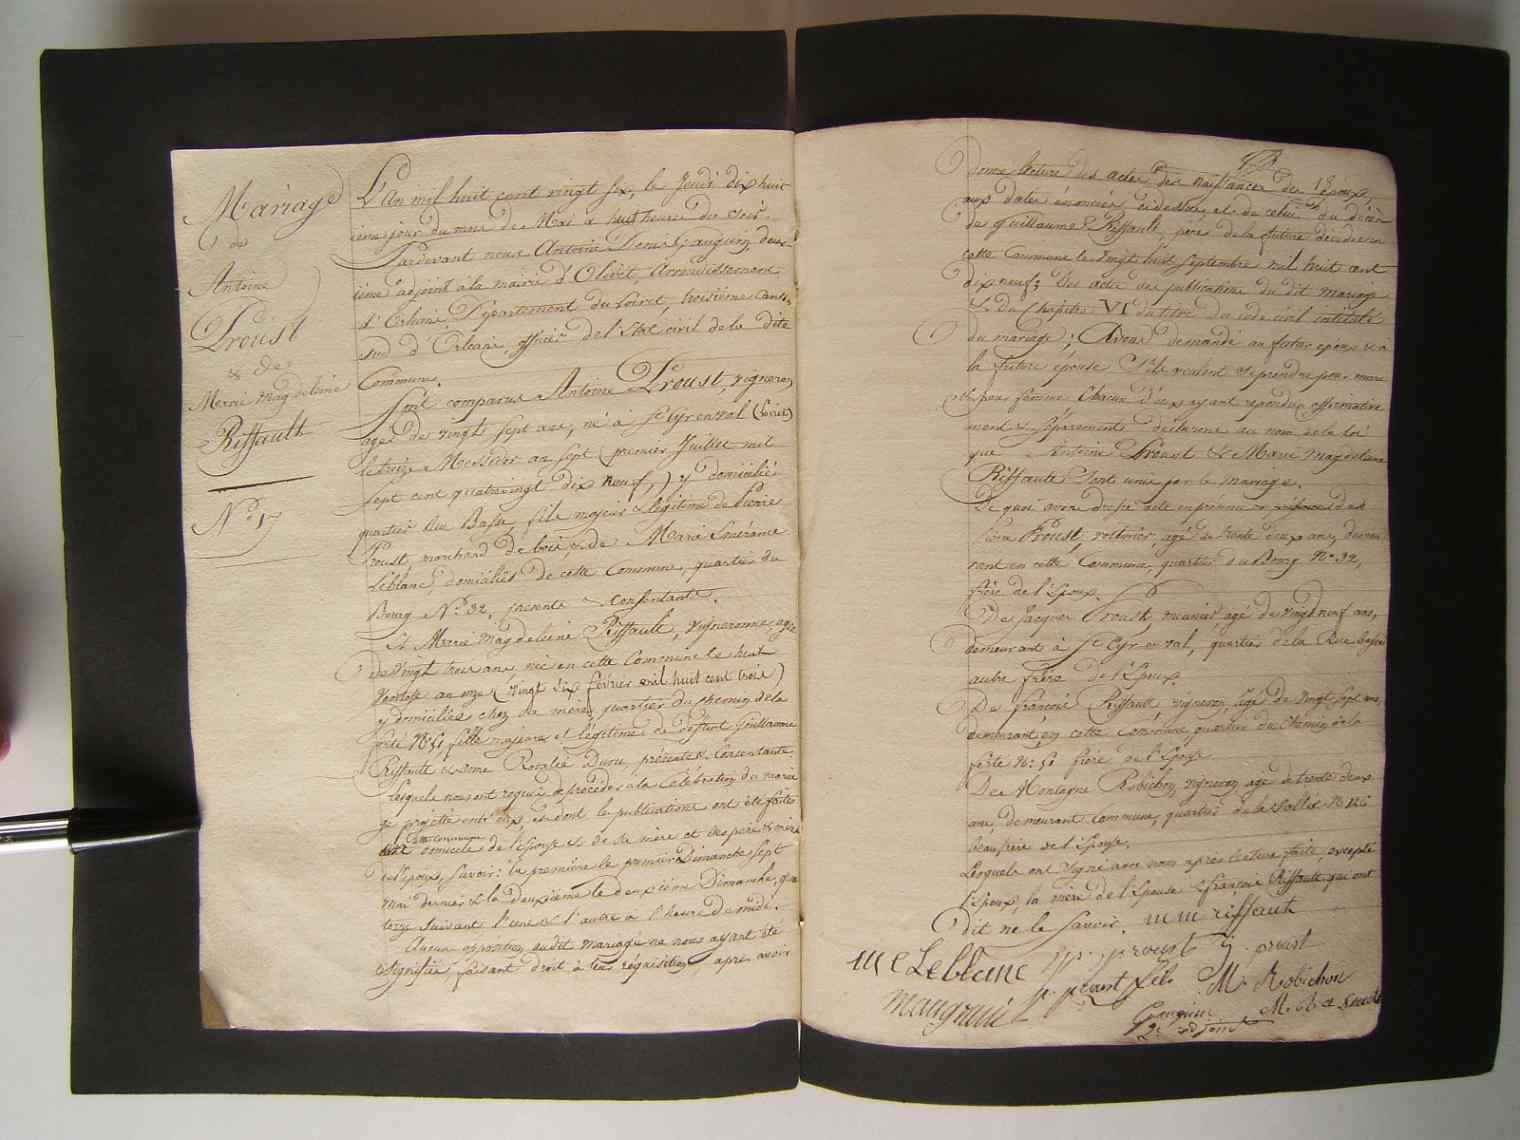 Mariage
de
Antoine
Proust
& de
Marie Magdeleine
Riffault
N° 17
L'An mil huit cent vingt six, le Jeudi dix huit
ième jour du mois de Mai à huit heures du soir.
Pardevant nous Antoine Denis Gauguin, deux-
ième adjoint à la mairie d'Olivet, Arrondissement
d'Orléans Département du Loiret, troisième Canton
sud d'Orléans officier de l'Etat civil de la dite
Commune.
Sont comparus Antoine Proust, vigneron
agé de vingt sept ans, né à St Cyr en val (Loiret)
le treize Messidor an sept (premier Juillet mil
sept cent quatrevingt dix neuf,) y domicilié
quartier Rue Basse, fils majeur & légitime de Pierre
Proust, marchand de bois, & de Marie Émérance
Leblanc, domiciliés de cette Commune, quartier du
Bourg N° 32, présents & consentants.
Et Marie Magdeleine Riffault, vigneronne, agée
de vingt trois ans, née en cette Commune le huit
Ventose an onze (vingt six février mil huit cent trois)
y domiciliée chez sa mère, quartier du chemin de la
ferté N° 51 fille majeure et légitime de deffunt Guillaume
Riffault & dame Rosalie Duru, présente & Consentante
Lesquels nous ont requis de procéder à la célébration du maria
ge projetté entr'eux & dont les publications ont été faites
cette commune
domicile de l'épouse & de sa mère et des père & mère
de l'époux, savoir: la première le premier Dimanche sept
mai dernier & la deuxième le deuxième Dimanche, qua
torze suivant l'une & l'autre à l'heure de midi.
Aucune opposition au dit mariage ne nous ayant été
signifiée, faisant droit à leur réquisition, après avoir
Donné lecture des actes des naissances des époux,
aux dates énoncées cidessus, et de celui du décès
de Guillaume Riffault, père de la future décédé en
cette Commune le vingt huit septembre mil huit cent
dix neuf; des actes des publications du dit mariage
& du Chapitre VI du titre du code civil intitulé
du mariage; Avons demandé au futur époux & à
la future épouse s'ils veulent se prendre pour mari
& pour femme Chacun d'eux ayant répondu affirmative
ment & séparément déclarons au nom de la loi
que Antoine Proust & Marie magdeleine
Riffault sont unis par le mariage.
De quoi avons dressé acte en présence de
Pierre Proust, voiturier, agé de trente deux ans, demeu
rant en cette Commune, quartier du Bourg N° 32,
frère de l'époux.
De Jacques Proust, meunier agé de vingt neuf ans,
demeurant à St Cyr en val, quartier de la Rue basse
autre frère de l'Epoux.
De françois Riffault vigneron, agé de vingt sept ans,
demeurant en cette Commune quartier du Chemin de la
ferté N° 51 frère de l'Epouse
De Montagne Robichon, vigneron, agé de trente deux
ans, demeurant Commune, quartier de la Vallée N° 126
beaufrère de l'Epouse.
Lesquels ont signé avec nous après lecture faite, excepté
l'Epoux, la mère de l'épouse & françois Riffault qui ont
dit ne le savoir. m m riffault
m e Leblanc pp. proust J. proust
P. proust fils M. Robichon
Gauguin
2e adjoint